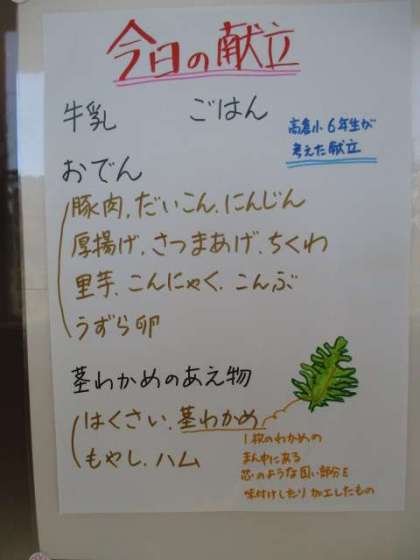 今日の献立
牛乳 ごはん
高倉小6年生が
考えた献立
おでん
豚肉、だいこん、にんじん
厚揚げ、さつまあげ、ちくわ
里芋、こんにゃく、こんぶ
うずら卵
茎わかめのあえ物
はくさい、茎わかめ
もやし、ハム
1枚のわかめの
まん中にある
芯のような固い部分を
味付けしたり加工したもの